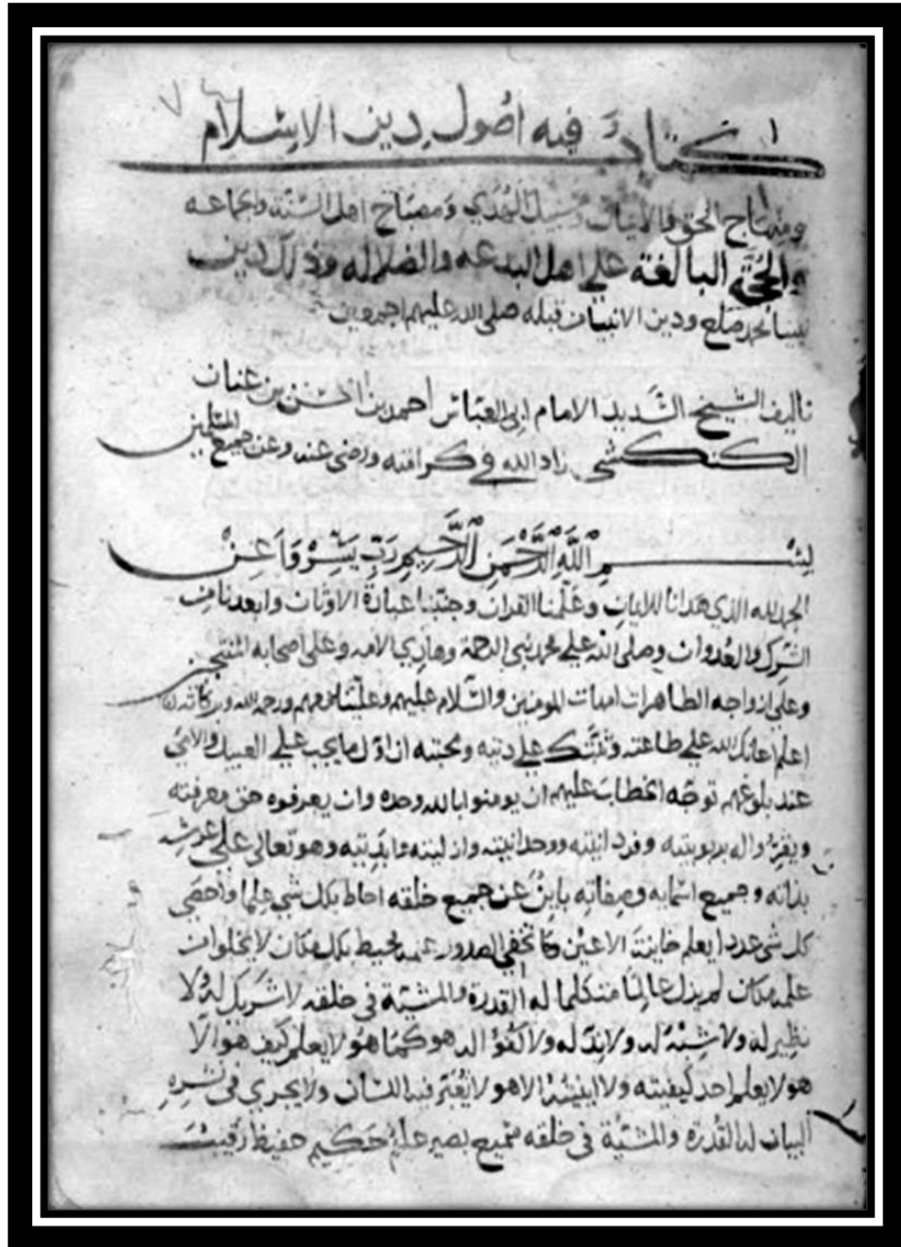 كتاب فيه اصول دين الاسلام
ومنهاج الحق والايمان وسبيل الهدي ومصباح اهل السنه والجماعه
والحجة البالغة علي اهل البدعه والضلاله وذلك دين
نبينا محمد صلع ودين الانبيا من قبله صلي الله عليهم اجمعين
تاليف الشيخ السديد الامام ابي العباس احمد بن الحسن بن عنان
الكنكشي زاد الله في كرامته ورضي عنه وعن جميع المسلمين
بسم الله الرحمن الرحيم رب يسر واعن
الحمد لله الذي هدانا للايمان وعلمنا القران وجنبنا عبادة الاوثان وابعدنا من
الشرك والعدوان وصلي الله علي محمد نبي الرحمة وهادي الامه وعلي اصحابه المنتجبين
وعلي ازواجه الطاهرات امهات المومنين والسلام عليهم وعلينا معهم ورحمة الله وبركاته
اعلم اعانك الله علي طاعته وثبتك علي دينه ومحبته ان اول ما يجب علي العبيد والاما
عند بلوغهم توجه الخطاب عليهم ان يومنوا بالله وحده وان يعرفوه حق معرفته
ويقروا له بربوبيته وفردانيته ووحدانيته وازليته وابديته وهو تعالي علي عرشه
بذاته وجميع اسمايه وصفاته باين عن جميع خلقه احاط بكل شي علما واحصي
كل شي عددا يعلم خاينة الاعين وما تخفي الصدور علمه محيط بكل مكان لا يخلوا من
علمه مكان لم يزل عالما متكلما له القدرة والمشية في خلقه لا شريك له ولا
نظير له ولا شبه له ولا ند له ولا كفؤ اله هو كما هو لا يعلم كيف هو الا
هو لا يعلم احد كيفيته ولا اينيته الا هو لا يفتر فيه اللسان ولا يجري في
البيان له القدرة والمشية في خلقه سميع بصير عليم حكيم حفيظ رقيب